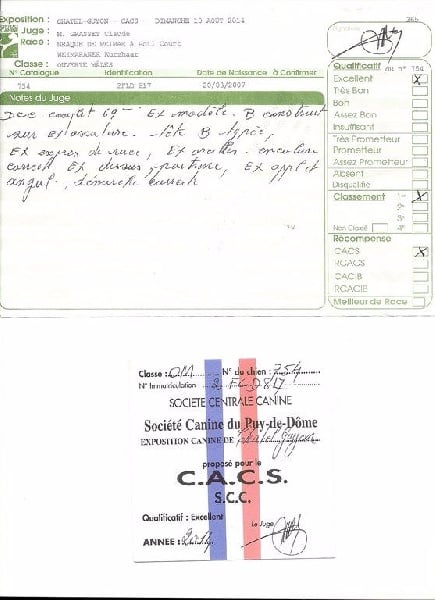 Exposition : CHATEL-GUYON - CACS DIMANCHE 10 AOUT 2014
Juge : M. Claude
Race : BRAQUE DE WEIMAR à Poil Court
WEIMARANER Kurzhaar
Classe : OUVERTE MÂLES
N° Catalogue Identification Date de Naissance à Confirmer
754 20/03/2007
Notes du Juge
Ex modèle. B construit
ossature. tête B typée,
Ex expres de race, Ex oreilles. encolure
correct Ex dessus, poitrine, Ex appl et
angul. démarche correct
Signature
Qualificatif du n° 754
Excellent X
Très Bon
Bon
Assez Bon
Insuffisant
Très Prometteur
Prometteur
Assez Prometteur
Absent
Disqualifié
Classement 1er X
2e
3e
Non Classé 4e
Récompense
CACS X
RCACS
CACIB
RCACIB
Meilleur de Race
Classe : OM N° du chien : 754
N° Immatriculation
SOCIETE CENTRALE CANINE
Société Canine du Puy-de-Dôme
EXPOSITION CANINE DE Chatel Guyon
proposé pour le
C.A.C.S.
S.C.C.
Qualificatif : Excellent Le Juge
ANNÉE : 2014